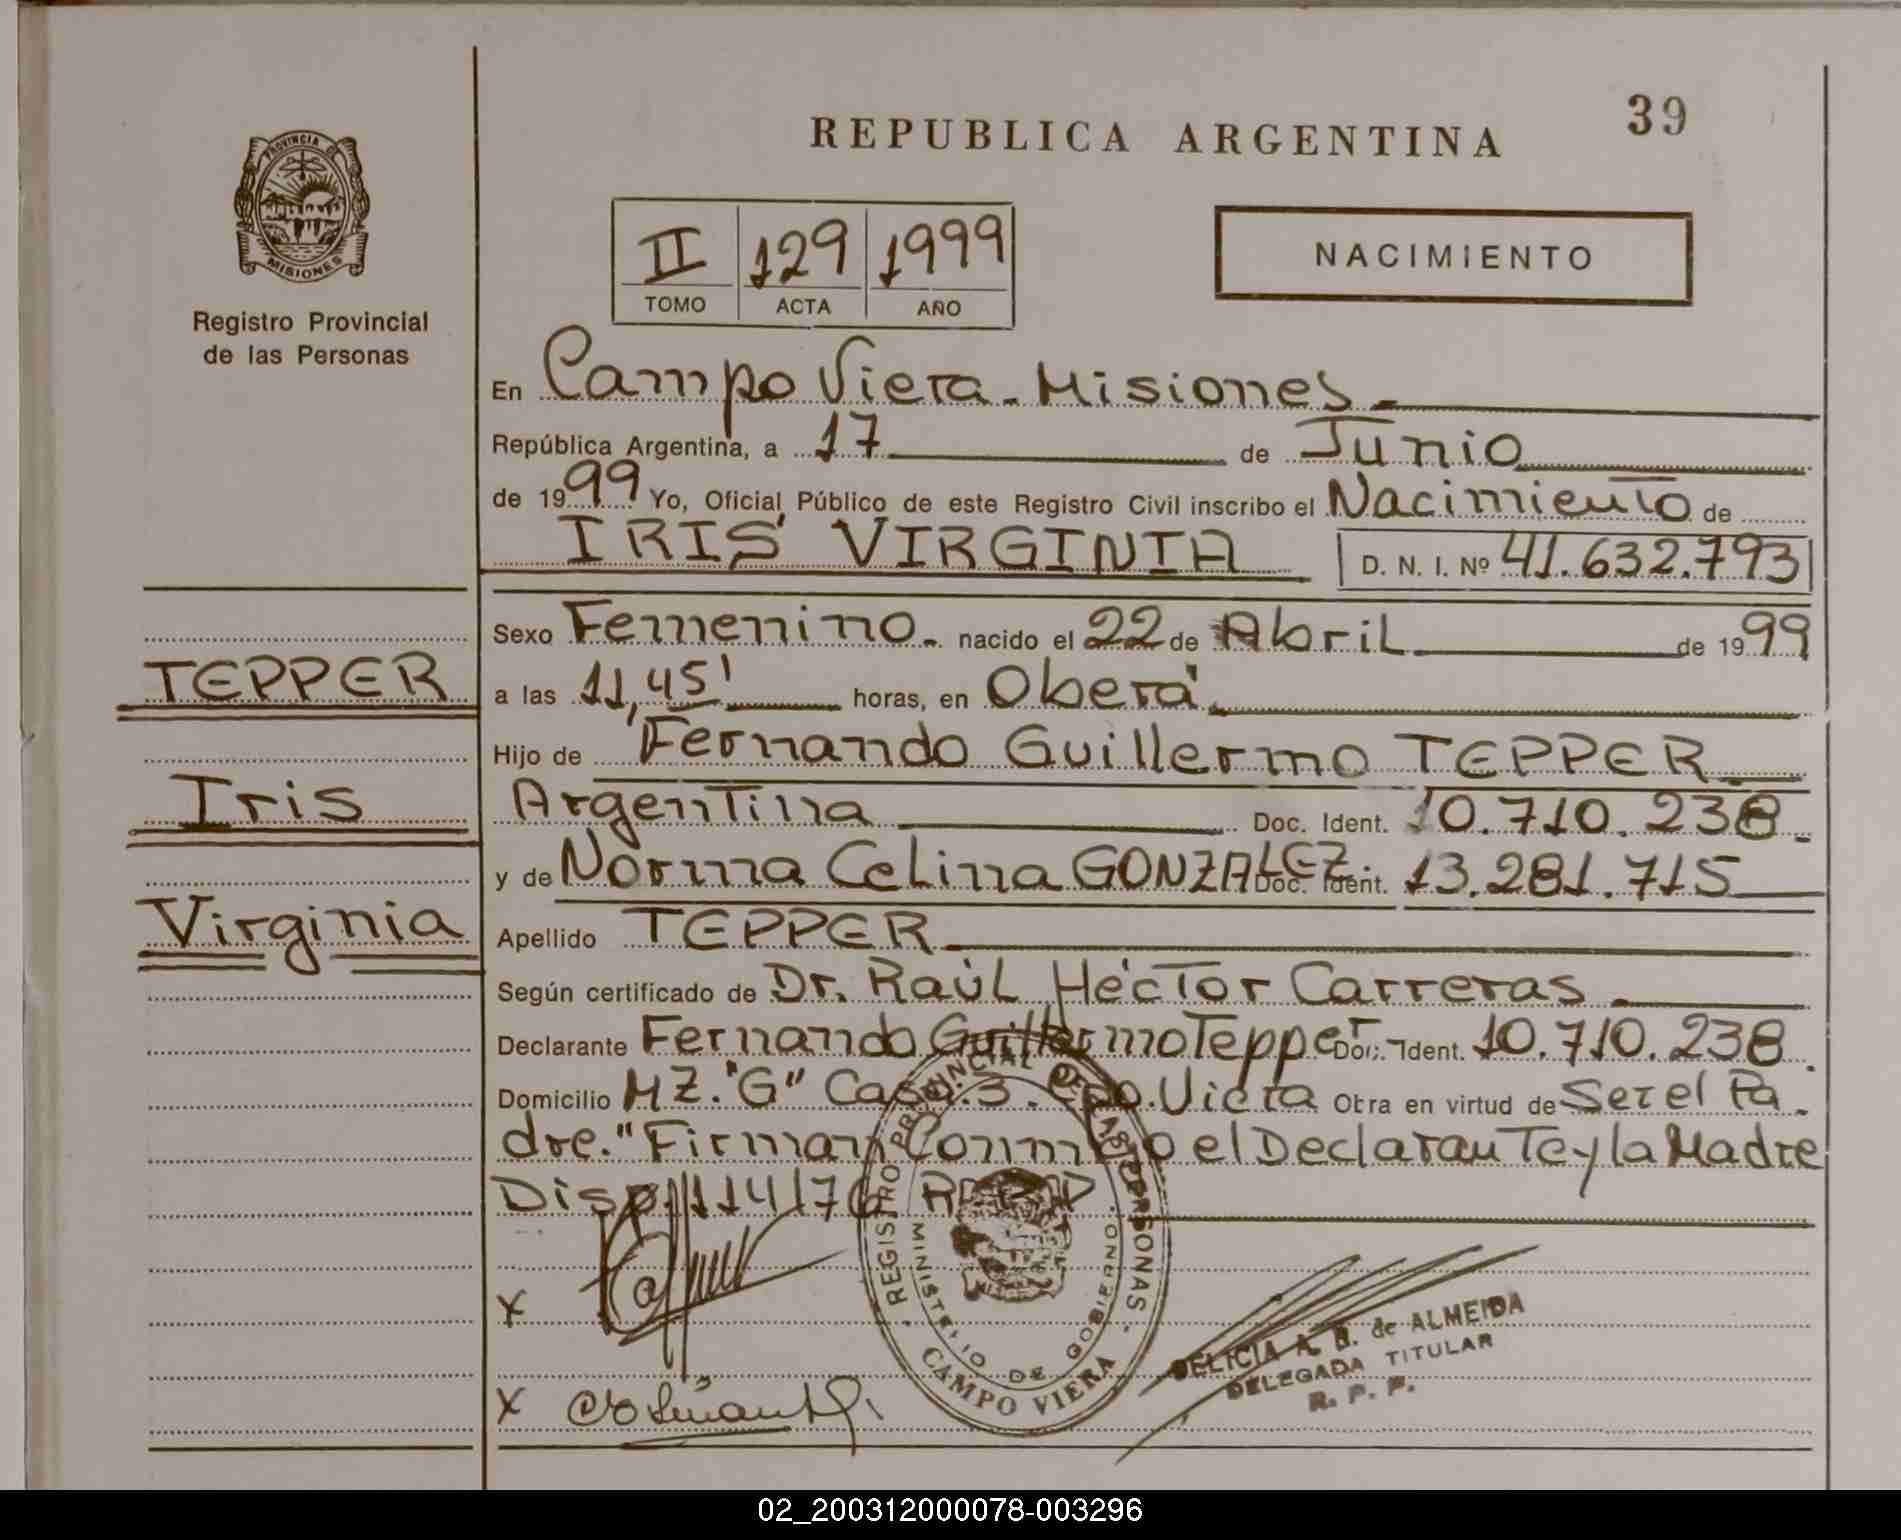 REPUBLICA ARGENTINA
39
PROVINCIA DE
MISIONES
Registro Provincial
de las Personas
II 129 1999
TOMO ACTA AÑO
NACIMIENTO
En Campo Viera - Misiones.
República Argentina, a 17 de Junio
de 1999 Yo, Oficial Público de este Registro Civil inscribo el Nacimiento de
IRIS VIRGINIA D. N. I. Nº 41.632.793
Sexo Femenino. nacido el 22 de Abril de 1999
a las 11,45' horas, en Oberá.
Hijo de Fernando Guillermo TEPPER.
Argentina Doc. Ident. 10.710.238.
y de Norma Celina GONZALEZ. Doc. Ident. 13.281.715
Apellido TEPPER
Según certificado de Dr. Raúl Héctor Carreras.
Declarante Fernando Guillermo Tepper Doc. Ident. 10.710.238.
Domicilio MZ. "G" Casa: 3. Cpo. Viera Obra en virtud de Ser el Pa-
dre. "Firman Conmigo el Declarante y la Madre
Disp. 114/76
X
X
TEPPER
Iris
Virginia
REGISTRO PROVINCIAL DE LAS PERSONAS
MINISTERIO DE GOBIERNO
CAMPO VIERA
DELICIA A. B. de ALMEIDA
DELEGADA TITULAR
R. P. P.
02_200312000078-003296